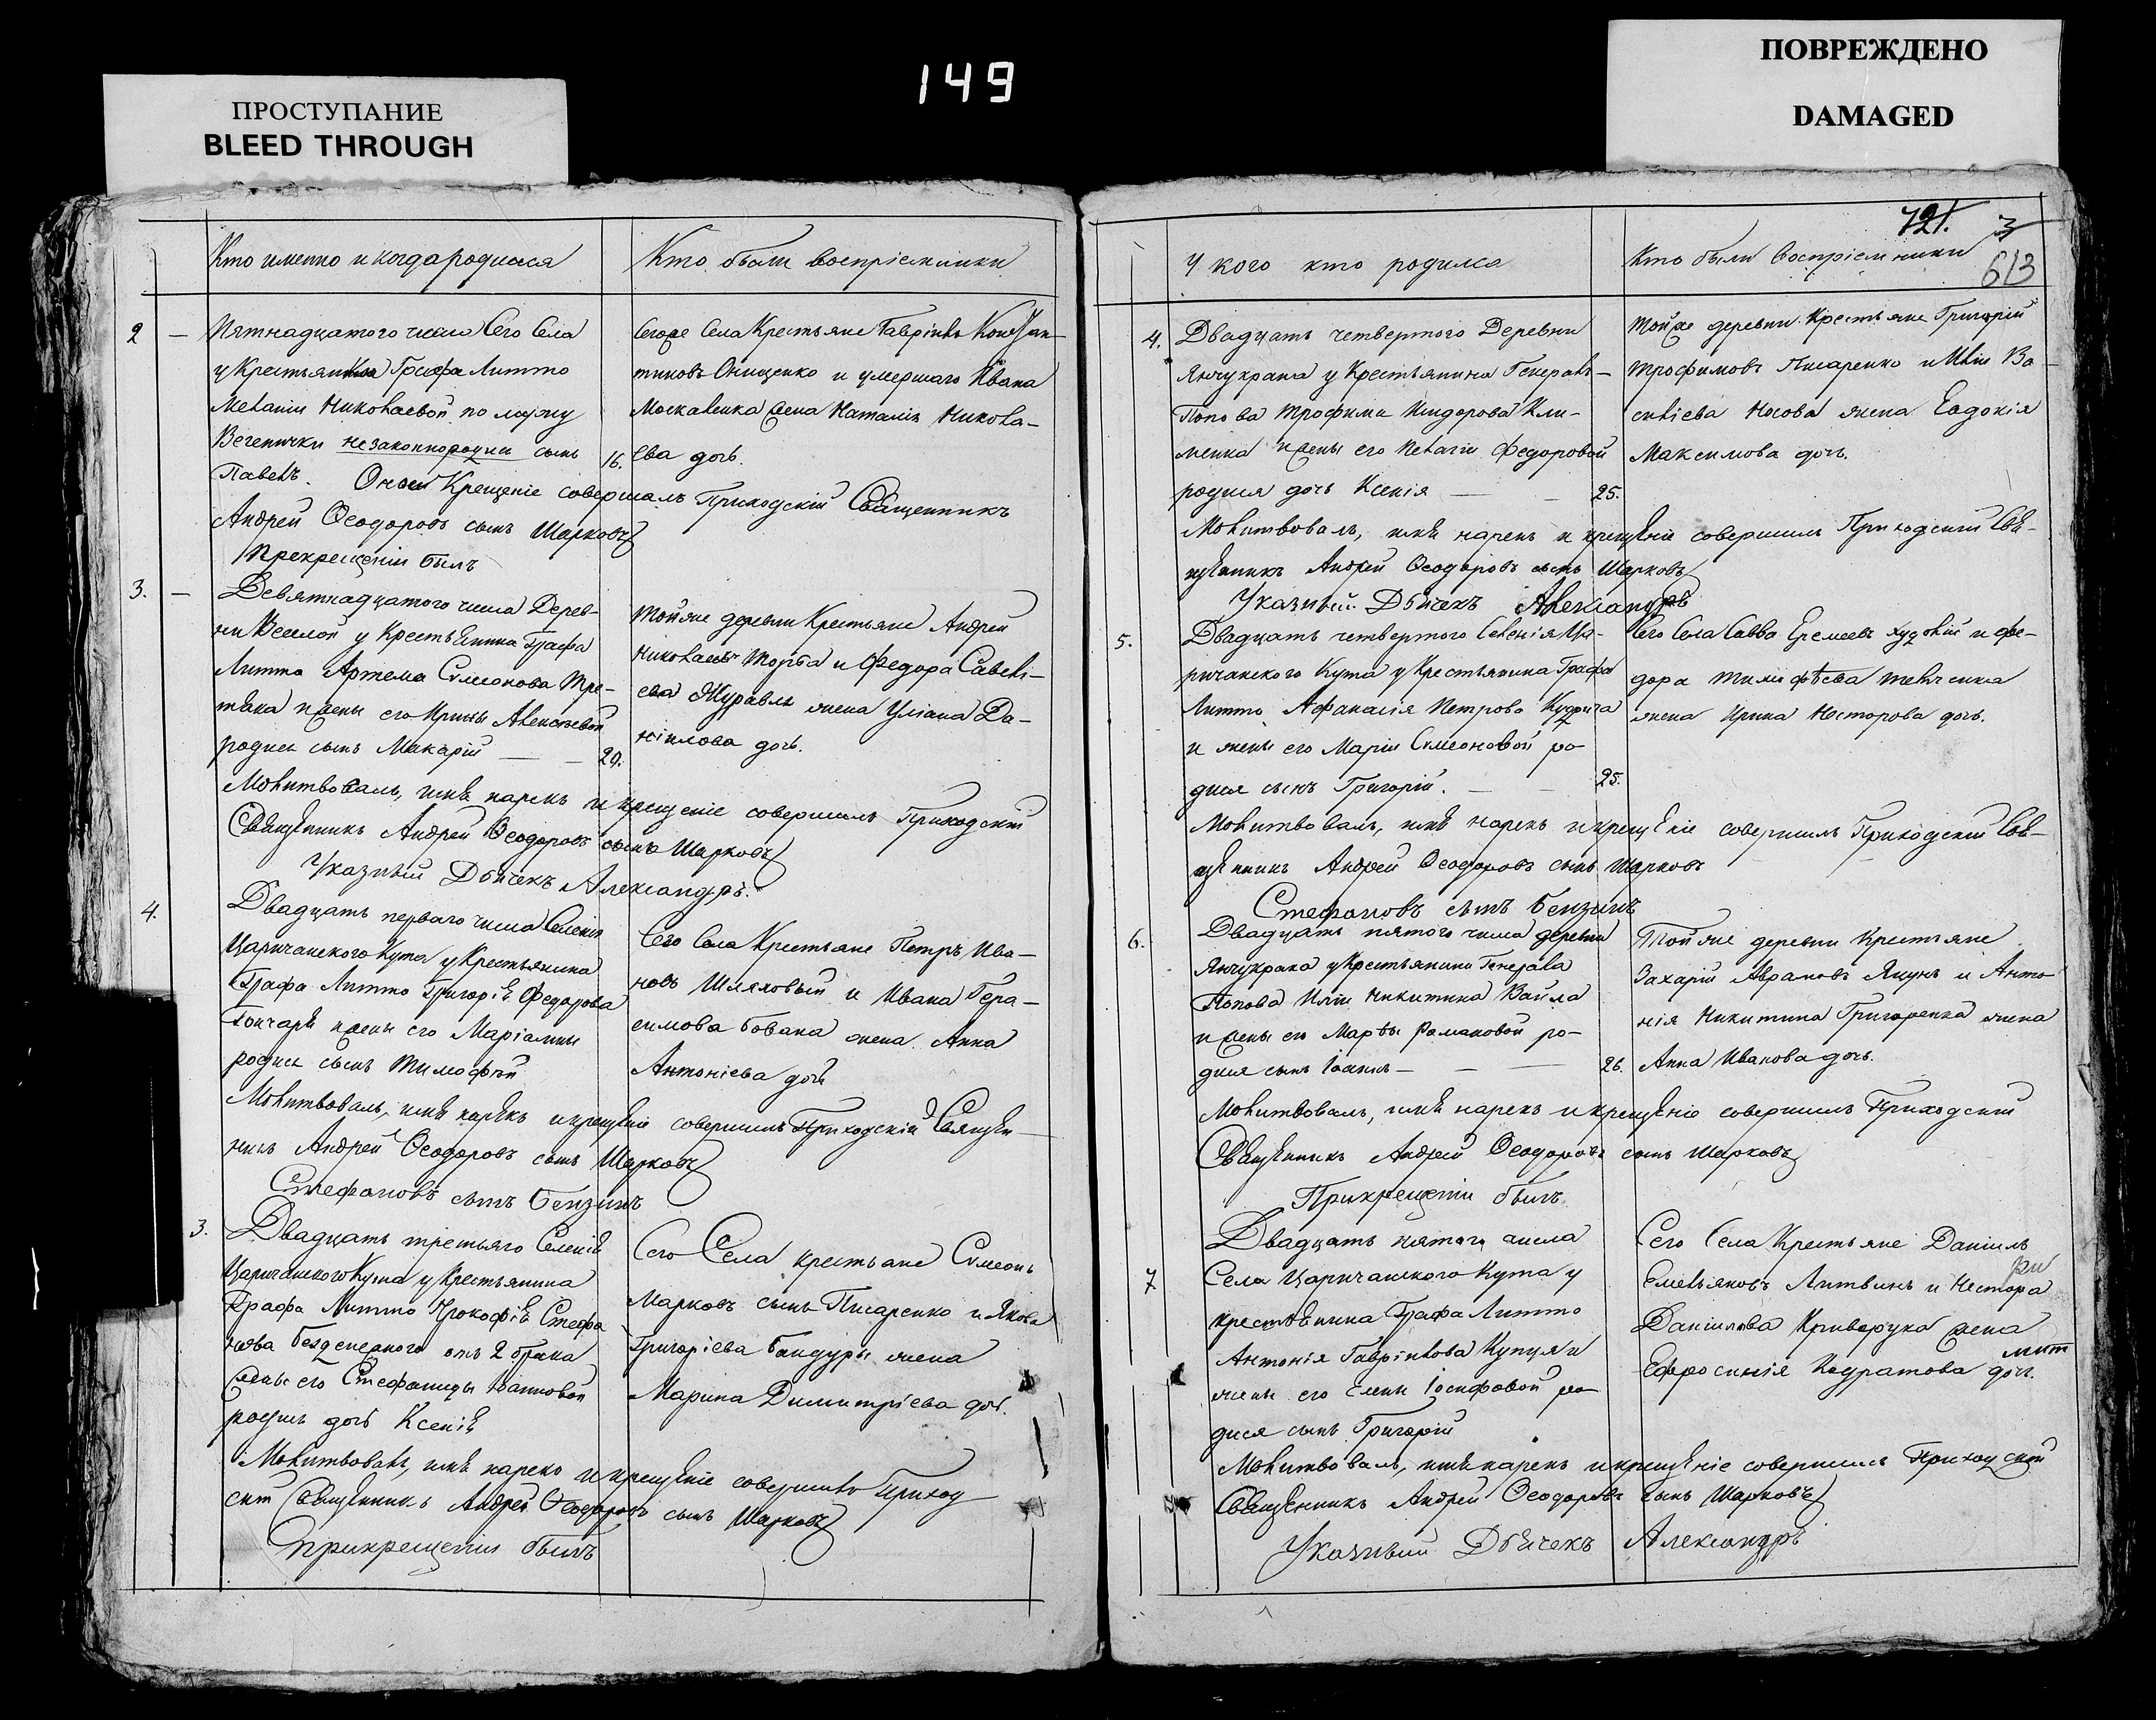 149
ПРОСТУПАНИЕ
BLEED THROUGH
ПОВРЕЖДЕНО
DAMAGED
Кто именно и когда родился
Кто были воспріемники
2 — Пятнадцатого числа Сего Села
у Крестьянина Графа Литто
Меланіи Николаевой по мужу
незаконнорожден сынъ 16.
Павелъ. Оное Крещеніе совершалъ Приходскій Священникъ
Андрей Ѳеодоровъ сынъ Шарковъ
При крещеніи былъ
Сегоже Села Крестьяне Гавріилъ Констан-
тиновъ Онищенко и умершаго Ивана
Москаленка жена Наталія Никола-
ева дочь.
3. — Девятнадцатого числа Дерев-
ни Веселой у Крестьянина Графа
Литто Артема Симеонова Тре-
тяка и жены его Ирины Алексеевой
родися сынъ Макарій — — 20.
Молитвовалъ, имя нарекъ и крещеніе совершилъ Приходскій
Священникъ Андрей Ѳеодоровъ сынъ Шарковъ
Указный Дьячекъ Александръ.
Тойже деревни Крестьяне Андрей
Николаевъ Торба и Федора Савелі-
ева Журавля жена Уліана Да-
ніилова дочь.
4. Двадцать перваго числа Селенія
Царичанского Кута у Крестьянина
Графа Литто Григорія Федорова
Гончаря и жены его Маріанны
родися сынъ Тимофѣй
Молитвовалъ, имя нарекъ и крещеніе совершилъ Приходскій Священ-
никъ Андрей Ѳеодоровъ сынъ Шарковъ
Стефановъ сынъ Бензинъ
Сего Села Крестьяне Петръ Ива-
новъ Шляховый и Ивана Гера-
симова Бована жена Анна
Антоніева дочь
3. Двадцать третьяго Селенія
Царичанского Кута у Крестьянина
Графа Литто Прокофія Стефа
нова Безденежного отъ 2 брака
жены его Стефаниды Іоанновой
родися дочь Ксенія
Молитвовалъ, имя нарекъ и крещеніе совершилъ Приход
скій Священникъ Андрей Ѳеодоровъ сынъ Шарковъ
При крещеніи былъ
Сего Села крестьяне Симеонъ
Марковъ сынъ Писаренко и Якова
Григоріева Бандуры жена
Марина Димитріева дочь.
721. 3
613
У кого кто родился
Кто были Воспріемники
4. Двадцать четвертого Деревни
Янчукрака у Крестьянина Генерала
Попова Трофима Исидорова Кли-
менка и жены его Пелагіи Федоровой
родися дочь Ксенія — — 25.
Молитвовалъ, имя нарекъ и крещеніе совершилъ Приходскій Свя-
щенникъ Андрей Ѳеодоровъ сынъ Шарковъ
Указный Дьячекъ Александръ
Тойже деревни Крестьяне Григорій
Трофимовъ Писаренко и Иліи Ва-
силіева Носова жена Евдокія
Максимова дочь.
5. Двадцать четвертого Селенія Ца-
ричанского Кута у Крестьянина Графа
Литто Афанасія Петрова Кудрича
и жены его Маріи Симеоновой ро-
дися сынъ Григорій. — — 25.
Молитвовалъ, имя нарекъ и крещеніе совершилъ Приходскій Свя-
щенникъ Андрей Ѳеодоровъ сынъ Шарковъ
Стефановъ сынъ Бензинъ
Сего Села Савва Еремеевъ Худолій и Фе-
дора Тимофѣева
жена Ирина Несторова дочь.
6. Двадцать пятого числа деревни
Янчукрака у Крестьянина Генерала
Попова Иліи Никитина Вайла
и жены его Марѳы Романовой ро-
дися сынъ Іоаннъ — — — 26.
Молитвовалъ, имя нарекъ и крещеніе совершилъ Приходскій
Священникъ Андрей Ѳеодоровъ сынъ Шарковъ
При крещеніи былъ
Тойже деревни Крестьяне
Захарій Авраамовъ Яцунъ и Анто-
нія Никитина Григоренка жена
Анна Иванова дочь.
7 Двадцать пятого числа
Села Царичанского Кута у
крестьянина Графа Литто
Антонія Гавріилова Купця и
жены его Елены Іосифовой ро-
дися сынъ Григорій
Молитвовалъ, имя нарекъ и крещеніе совершилъ Приходскій
Священникъ Андрей Ѳеодоровъ сынъ Шарковъ
Указный Дьячекъ Александръ
Сего Села Крестьяне Даніилъ
Емельяновъ Литвинъ и Нестора
Даніилова Криворука жена
Ефросинія Кодратова дочь.